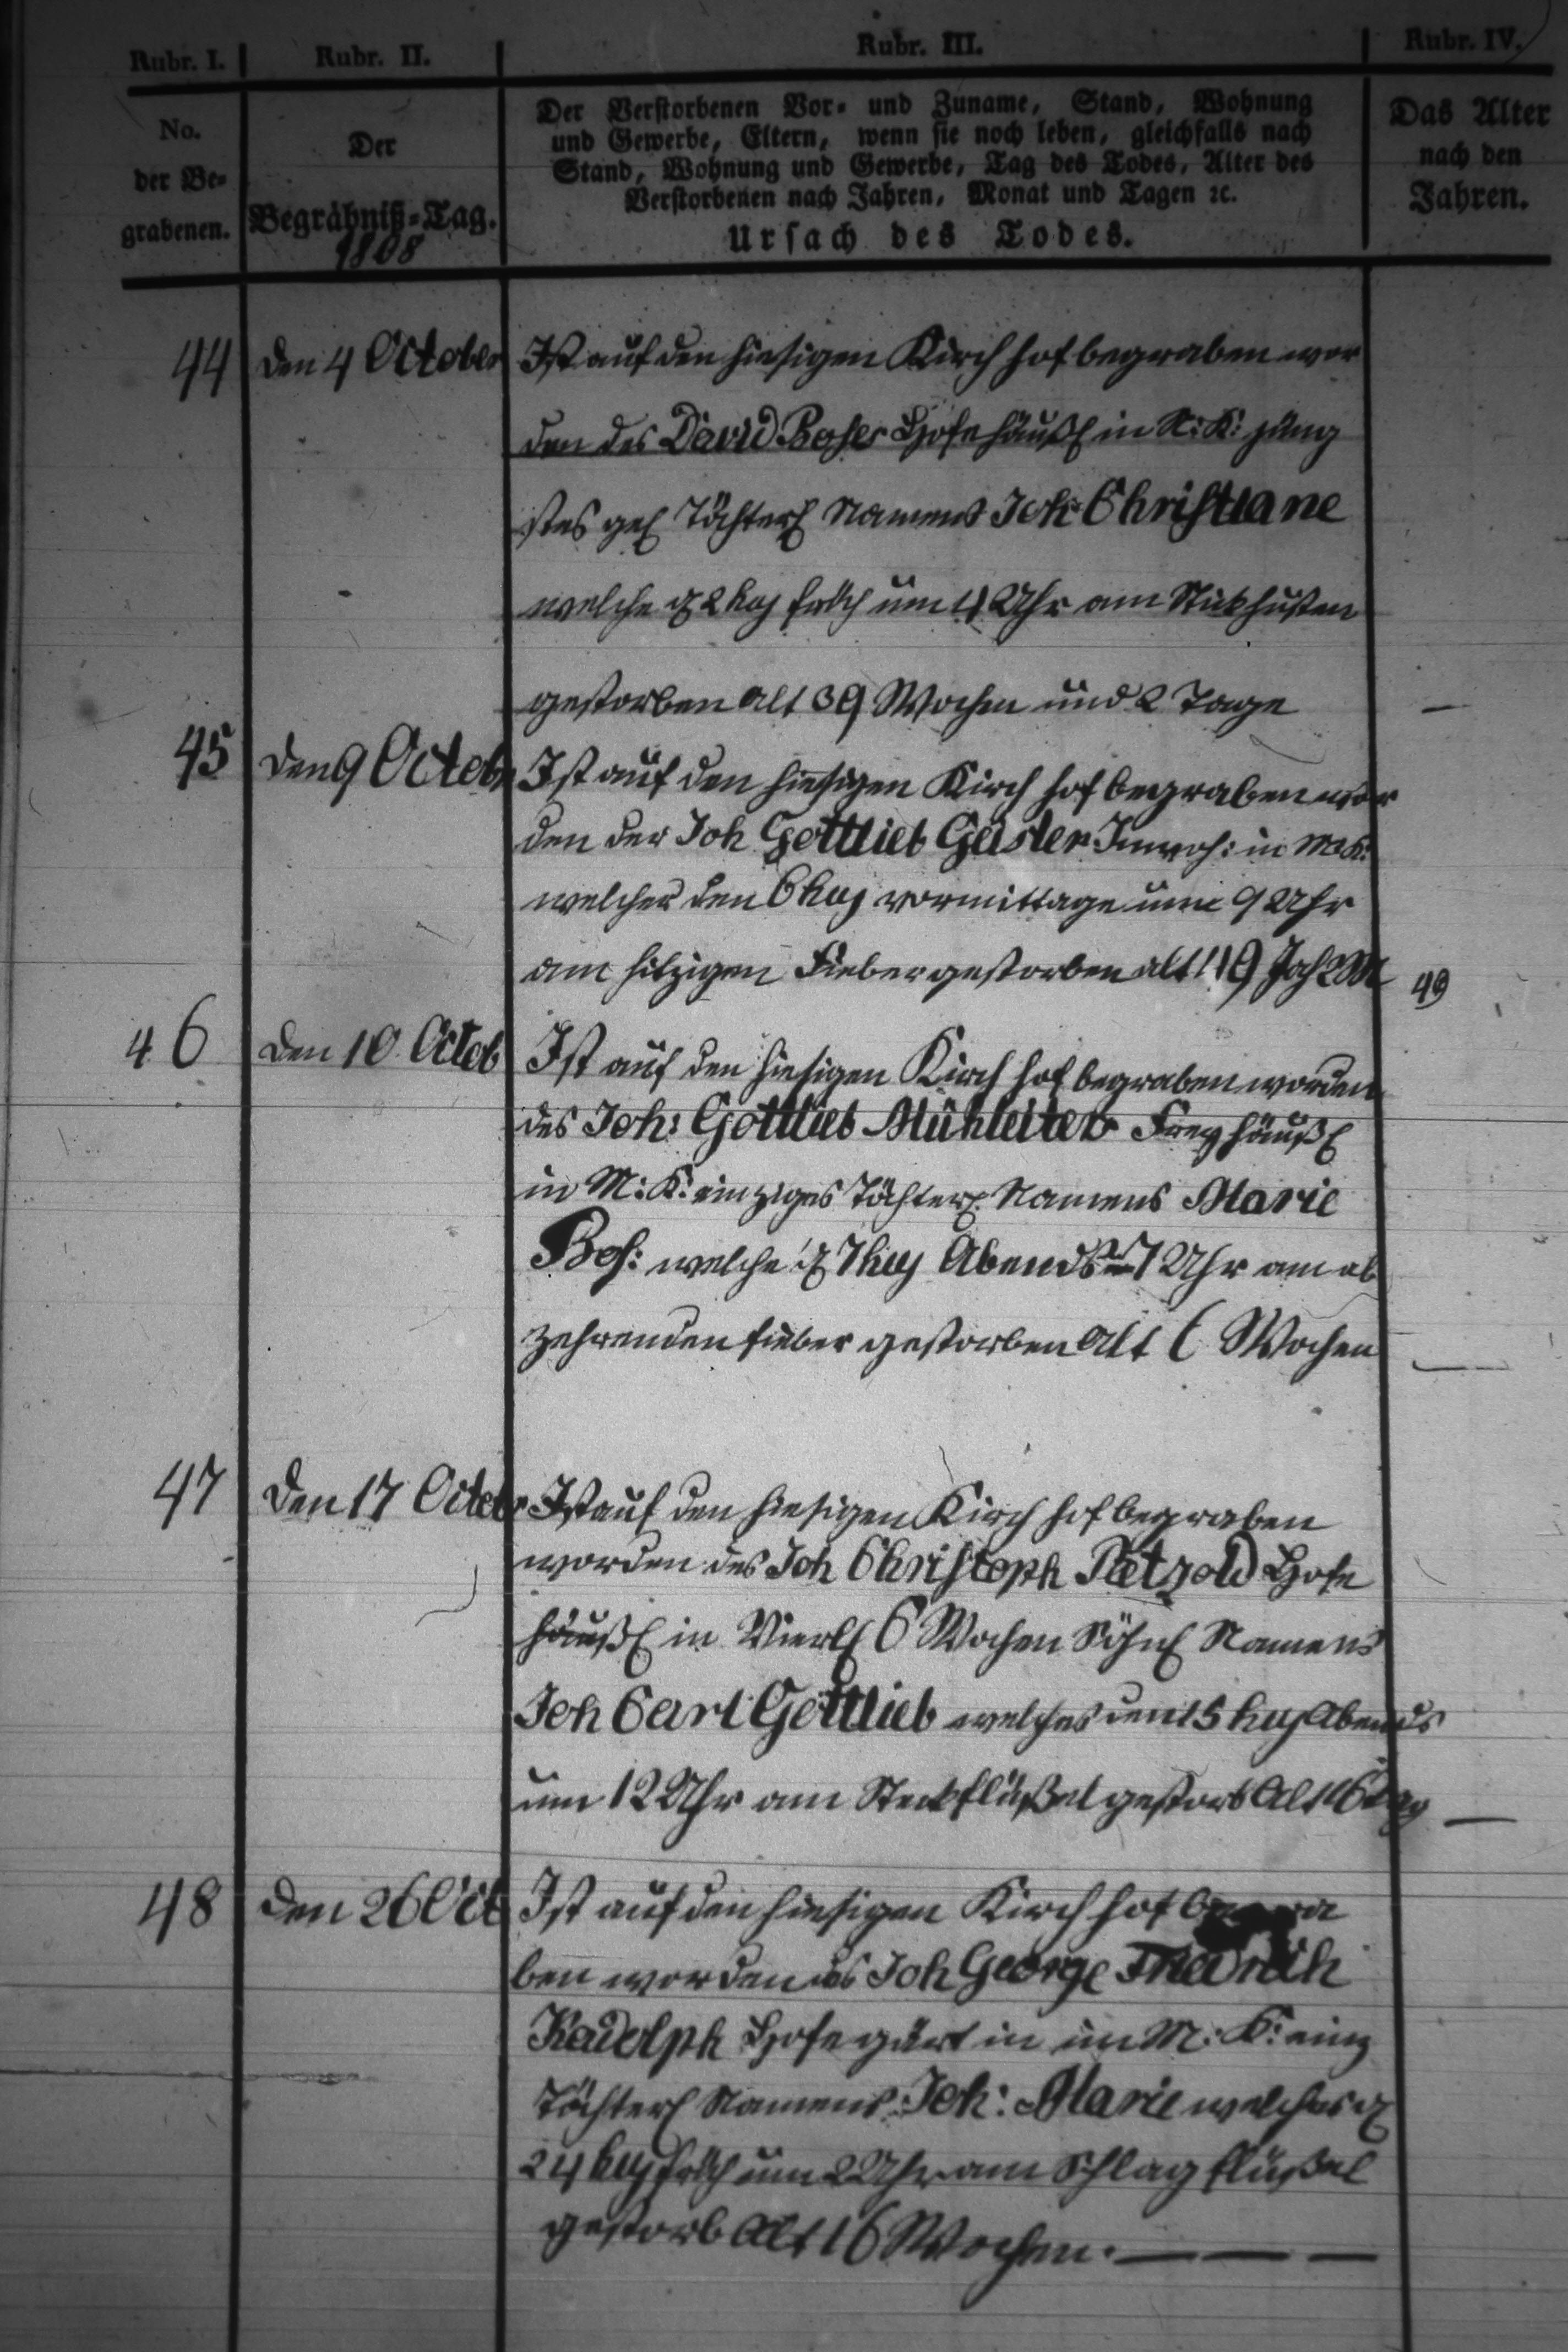 Rubr. I. Rubr. II. Rubr. III. Rubr. IV.
No.
der Be-
grabenen.
Der
Begräbniß-Tag.
1808
Der Verstorbenen Vor- und Zuname, Stand, Wohnung
und Gewerbe, Eltern, wenn sie noch leben, gleichfalls nach
Stand, Wohnung und Gewerbe, Tag des Todes, Alter des
Verstorbenen nach Jahren, Monat und Tagen ꝛc.
Ursach des Todes.
Das Alter
nach den
Jahren.
44 den 4 October Ist auf den hiesigen Kirch hof begraben wor
den des David Boser Hofehäußl in N: K: jüng
stes gel Töchterl Namens Joh Christiane
welche d 2 huj früh um 4 Uhr am Stickhusten
gestorben alt 39 Wochen und 2 Tage —
45 den 9 Octob Ist auf den hiesigen Kirch hof begraben wor
den der Joh Gottlieb Geisler Inwoh: in M K:
welcher den 6 huj vormittage um 9 Uhr
am hitzigen Fieber gestorben alt 49 Jah 2 M 49
46 den 10 Octob Ist auf den hiesigen Kirch hof begraben worden
des Joh: Gottlieb Mühleiter Freyhäußl
in M: K: einziges Töchterl Namens Marie
Ros: welche d 7 huj Abends 7 Uhr am ab
zehrenden fieber gestorben Alt 6 Wochen —
47 den 17 Octob Ist auf den hiesigen Kirch hof begraben
worden des Joh Christoph Petzold Hofe
häußl in Vierl 6 Wochen Söhnl Namens
Joh Carl Gottlieb welches den 15 huj Abends
um 12 Uhr am Steckflüßel gestorb Alt 16 Tag —
48 den 26 Oct Ist auf den hiesigen Kirch hof begra
ben worden des Joh George Friedrich
Kadolph Hofegärt in M: K: einz
Töchterl Namens Joh: Marie welches d
24 huj früh um 2 Uhr am Schlag flüßel
gestorb Alt 16 Wochen. — — —